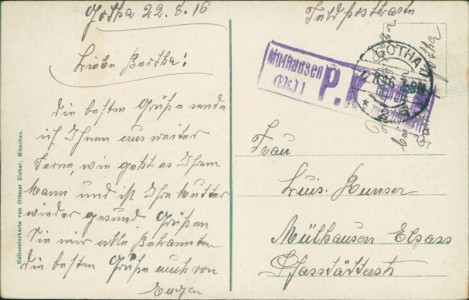 Gotha 22.8.16
Liebe Bertha!
Die besten Grüße sende
ich Ihnen aus weiter
Ferne, wie geht es Ihrem
Mann und ist Ihre Mutter
wieder gesund. Grüßen
Sie mir alle Bekannten
die besten Grüße auch von
Eugen
Feldpostkarte
Mülhausen
(Els.)
P.K.
GOTHA
Frau
Luis.
Mülhausen Elsass
Pfastätterstr
Heliocolorkarte von Ottmar Zieher, München.